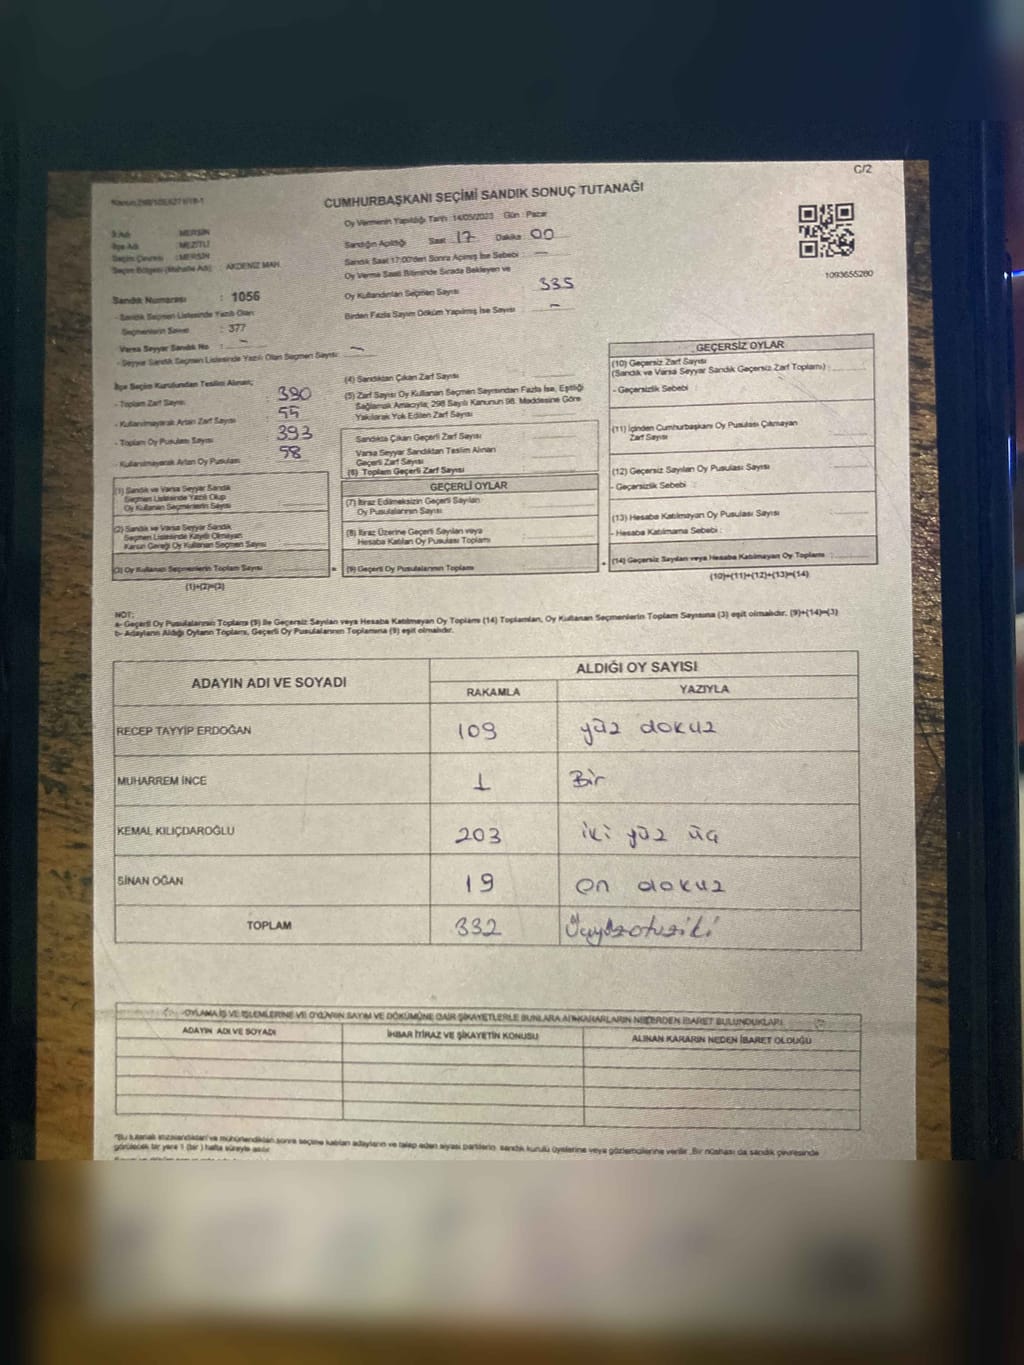 G/2
CUMHURBAŞKANI SEÇİMİ SANDIK SONUÇ TUTANAĞI
İl Adı MERSİN
İlçe Adı MEZİTLİ
Seçim Çevresi : MERSİN
Seçim Bölgesi (Mahalle Adı) : AKDENİZ MAH.
Sandık Numarası : 1056
- Sandık Seçmen Listesinde Yazılı Olan
Seçmenlerin Sayısı : 377
Varsa Seyyar Sandık No : -
- Seyyar Sandık Seçmen Listesinde Yazılı Olan Seçmen Sayısı : -
Oy Vermenin Yapıldığı Tarih 14/05/2023 Gün : Pazar
Sandığın Açıldığı Saat 17 Dakika 00
Sandık Saat 17:00'den Sonra Açılmış İse Sebebi : -
Oy Verme Saati Bitiminde Sırada Bekleyen ve
Oy Kullandırılan Seçmen Sayısı 335
Birden Fazla Sayım Döküm Yapılmış İse Sayısı : -
1093655280
İlçe Seçim Kurulundan Teslim Alınan;
- Toplam Zarf Sayısı 390
- Kullanılmayarak Artan Zarf Sayısı 55
- Toplam Oy Pusulası Sayısı 393
- Kullanılmayarak Artan Oy Pusulası 58
(1) Sandık ve Varsa Seyyar Sandık
Seçmen Listesinde Yazılı Olup
Oy Kullanan Seçmenlerin Sayısı
(2) Sandık ve Varsa Seyyar Sandık
Seçmen Listesinde Kayıtlı Olmayan
Kanun Gereği Oy Kullanan Seçmen Sayısı
(3) Oy Kullanan Seçmenlerin Toplam Sayısı
(1)+(2)=(3)
(4) Sandıktan Çıkan Zarf Sayısı :
(5) Zarf Sayısı Oy Kullanan Seçmen Sayısından Fazla İse, Eşitliği
Sağlamak Amacıyla, 298 Sayılı Kanunun 98. Maddesine Göre
Yakılarak Yok Edilen Zarf Sayısı
Sandıkta Çıkan Geçerli Zarf Sayısı
Varsa Seyyar Sandıktan Teslim Alınan
Geçerli Zarf Sayısı
(6) Toplam Geçerli Zarf Sayısı
GEÇERLİ OYLAR
(7) İtiraz Edilmeksizin Geçerli Sayılan
Oy Pusulalarının Sayısı
(8) İtiraz Üzerine Geçerli Sayılan veya
Hesaba Katılan Oy Pusulası Toplamı
(9) Geçerli Oy Pusulalarının Toplamı
GEÇERSİZ OYLAR
(10) Geçersiz Zarf Sayısı
(Sandık ve Varsa Seyyar Sandık Geçersiz Zarf Toplamı) :
- Geçersizlik Sebebi :
(11) İçinden Cumhurbaşkanı Oy Pusulası Çıkmayan
Zarf Sayısı
(12) Geçersiz Sayılan Oy Pusulası Sayısı
- Geçersizlik Sebebi :
(13) Hesaba Katılmayan Oy Pusulası Sayısı
- Hesaba Katılmama Sebebi :
(14) Geçersiz Sayılan veya Hesaba Katılmayan Oy Toplamı :
(10)+(11)+(12)+(13)=(14)
NOT;
a- Geçerli Oy Pusulalarının Toplamı (9) ile Geçersiz Sayılan veya Hesaba Katılmayan Oy Toplamı (14) Toplamları, Oy Kullanan Seçmenlerin Toplam Sayısına (3) eşit olmalıdır. (9)+(14)=(3)
b- Adayların Aldığı Oyların Toplamı, Geçerli Oy Pusulalarının Toplamına (9) eşit olmalıdır.
ADAYIN ADI VE SOYADI ALDIĞI OY SAYISI
RAKAMLA YAZIYLA
RECEP TAYYİP ERDOĞAN 109 yüz dokuz
MUHARREM İNCE 1 Bir
KEMAL KILIÇDAROĞLU 203 iki yüz üç
SİNAN OĞAN 19 on dokuz
TOPLAM 332 Üçyüzotuziki
OYLAMA İŞ VE İŞLEMLERİNE VE OYLARIN SAYIM VE DÖKÜMÜNE DAİR ŞİKAYETLERLE BUNLARA AİT KARARLARIN NELERDEN İBARET BULUNDUKLARI
ADAYIN ADI VE SOYADI İHBAR İTİRAZ VE ŞİKAYETİN KONUSU ALINAN KARARIN NEDEN İBARET OLDUĞU
*Bu tutanak imzalandıktan ve mühürlendikten sonra seçime katılan adayların ve talep eden siyasi partilerin sandık kurulu üyelerine veya gözlemcilerine verilir. Bir nüshası da sandık çevresinde
görülecek bir yere 1 (bir) hafta süreyle asılır.